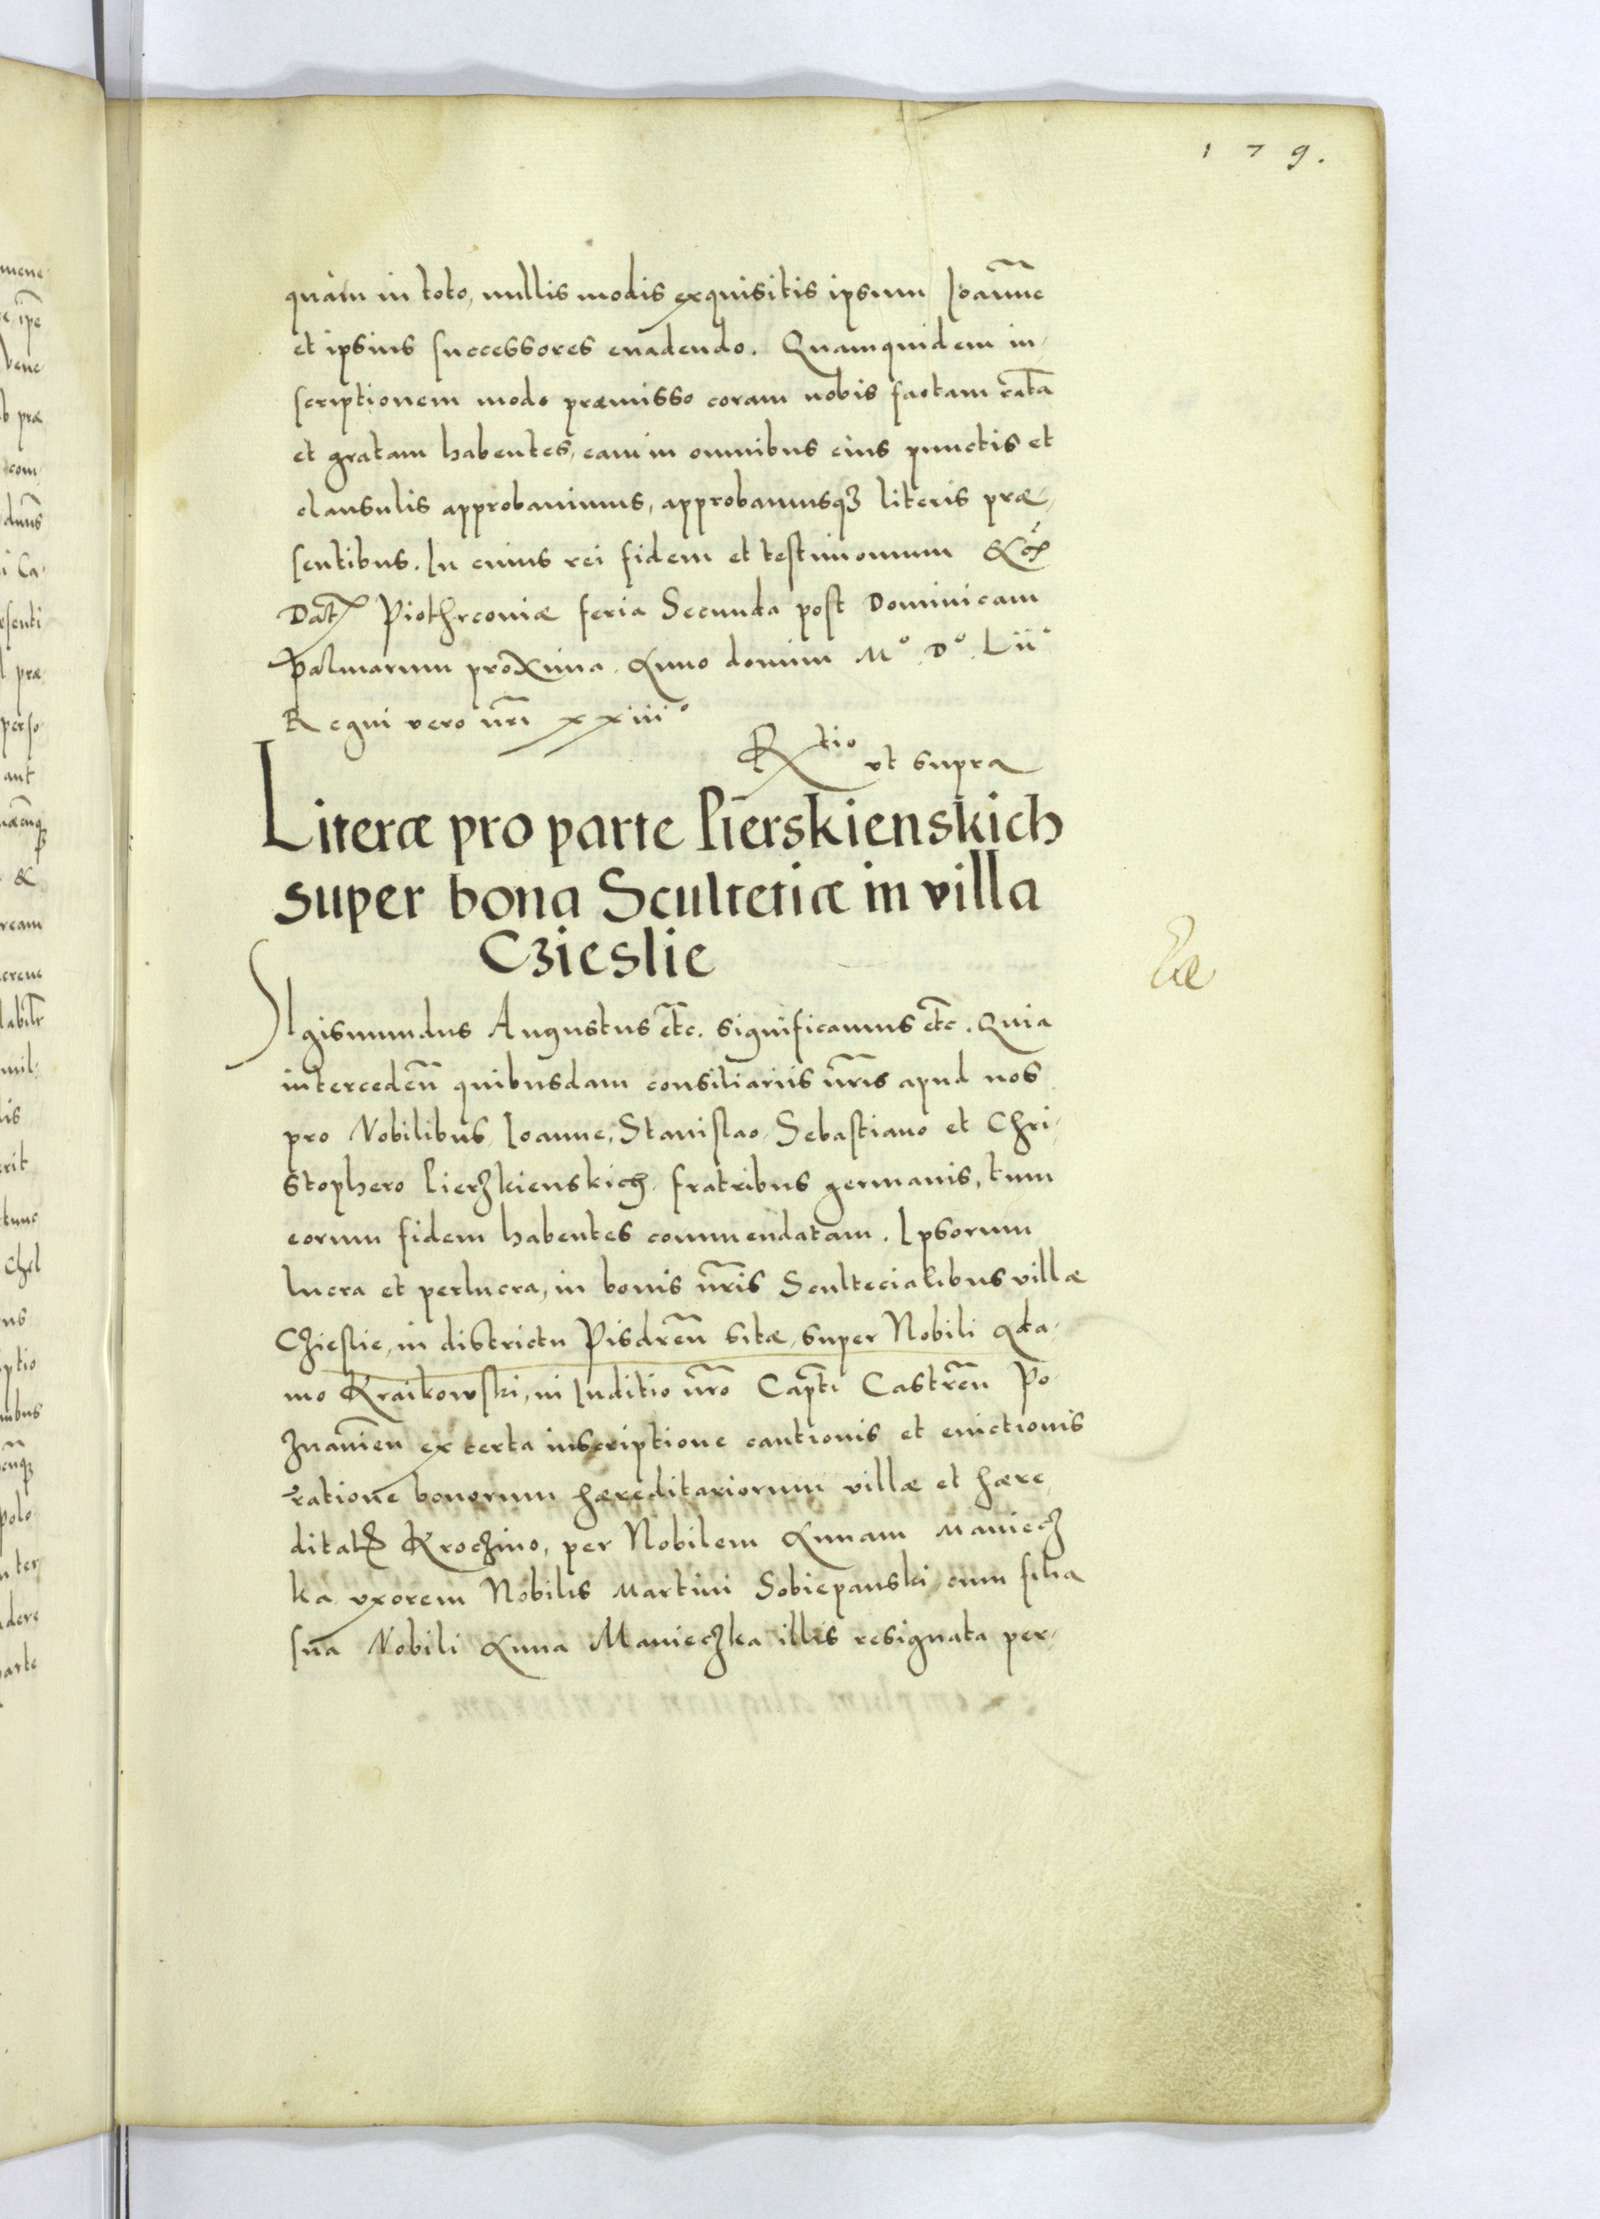 179.
quàm in toto, nullis modis exquisitis ipsum Ioanne
et ipsius successores euadendo. Quamquidem in-
scriptionem modo præmisso coram nobis factam rata
et gratam habentes, eam in omnibus eius punctis et
clausulis approbauimus, approbamusqȝ literis præ-
sentibus. In cuius rei fidem et testimonium &c.
Dat. Piothrconiæ feria Secunda post Dominicam
Palmarum proxima. Anno domini M° D° Lii°
Regni vero nri xxiii°
Rtio vt supra
Literæ pro parte Pierskienskich
super bona Scultetiæ in villa
Czieslie
Sigismundus Augustus etc. significamus etc. Quia
interceden quibusdam consiliariis nris apud nos
pro Nobilibus Ioanne, Stanislao, Sebastiano et Chri-
stophero Pierzkienskich fratribus germanis, tum
eorum fidem habentes commendatam. Ipsorum
lucra et perlucra, in bonis nris Scultecialibus villæ
Czieslie, in districtu Pisdren sitæ, super Nobili Ada-
mo Kraikowski, in Iuditio nro Capti Castren Po-
znanien ex certa inscriptione cautionis et euictionis
ratione bonorum hæreditariorum villæ et hære-
ditat Kroczino, per Nobilem Annam Maniecz
ka vxorem Nobilis Martini Sobiepanski cum filia
sua Nobili Anna Manieczka illis resignata per-